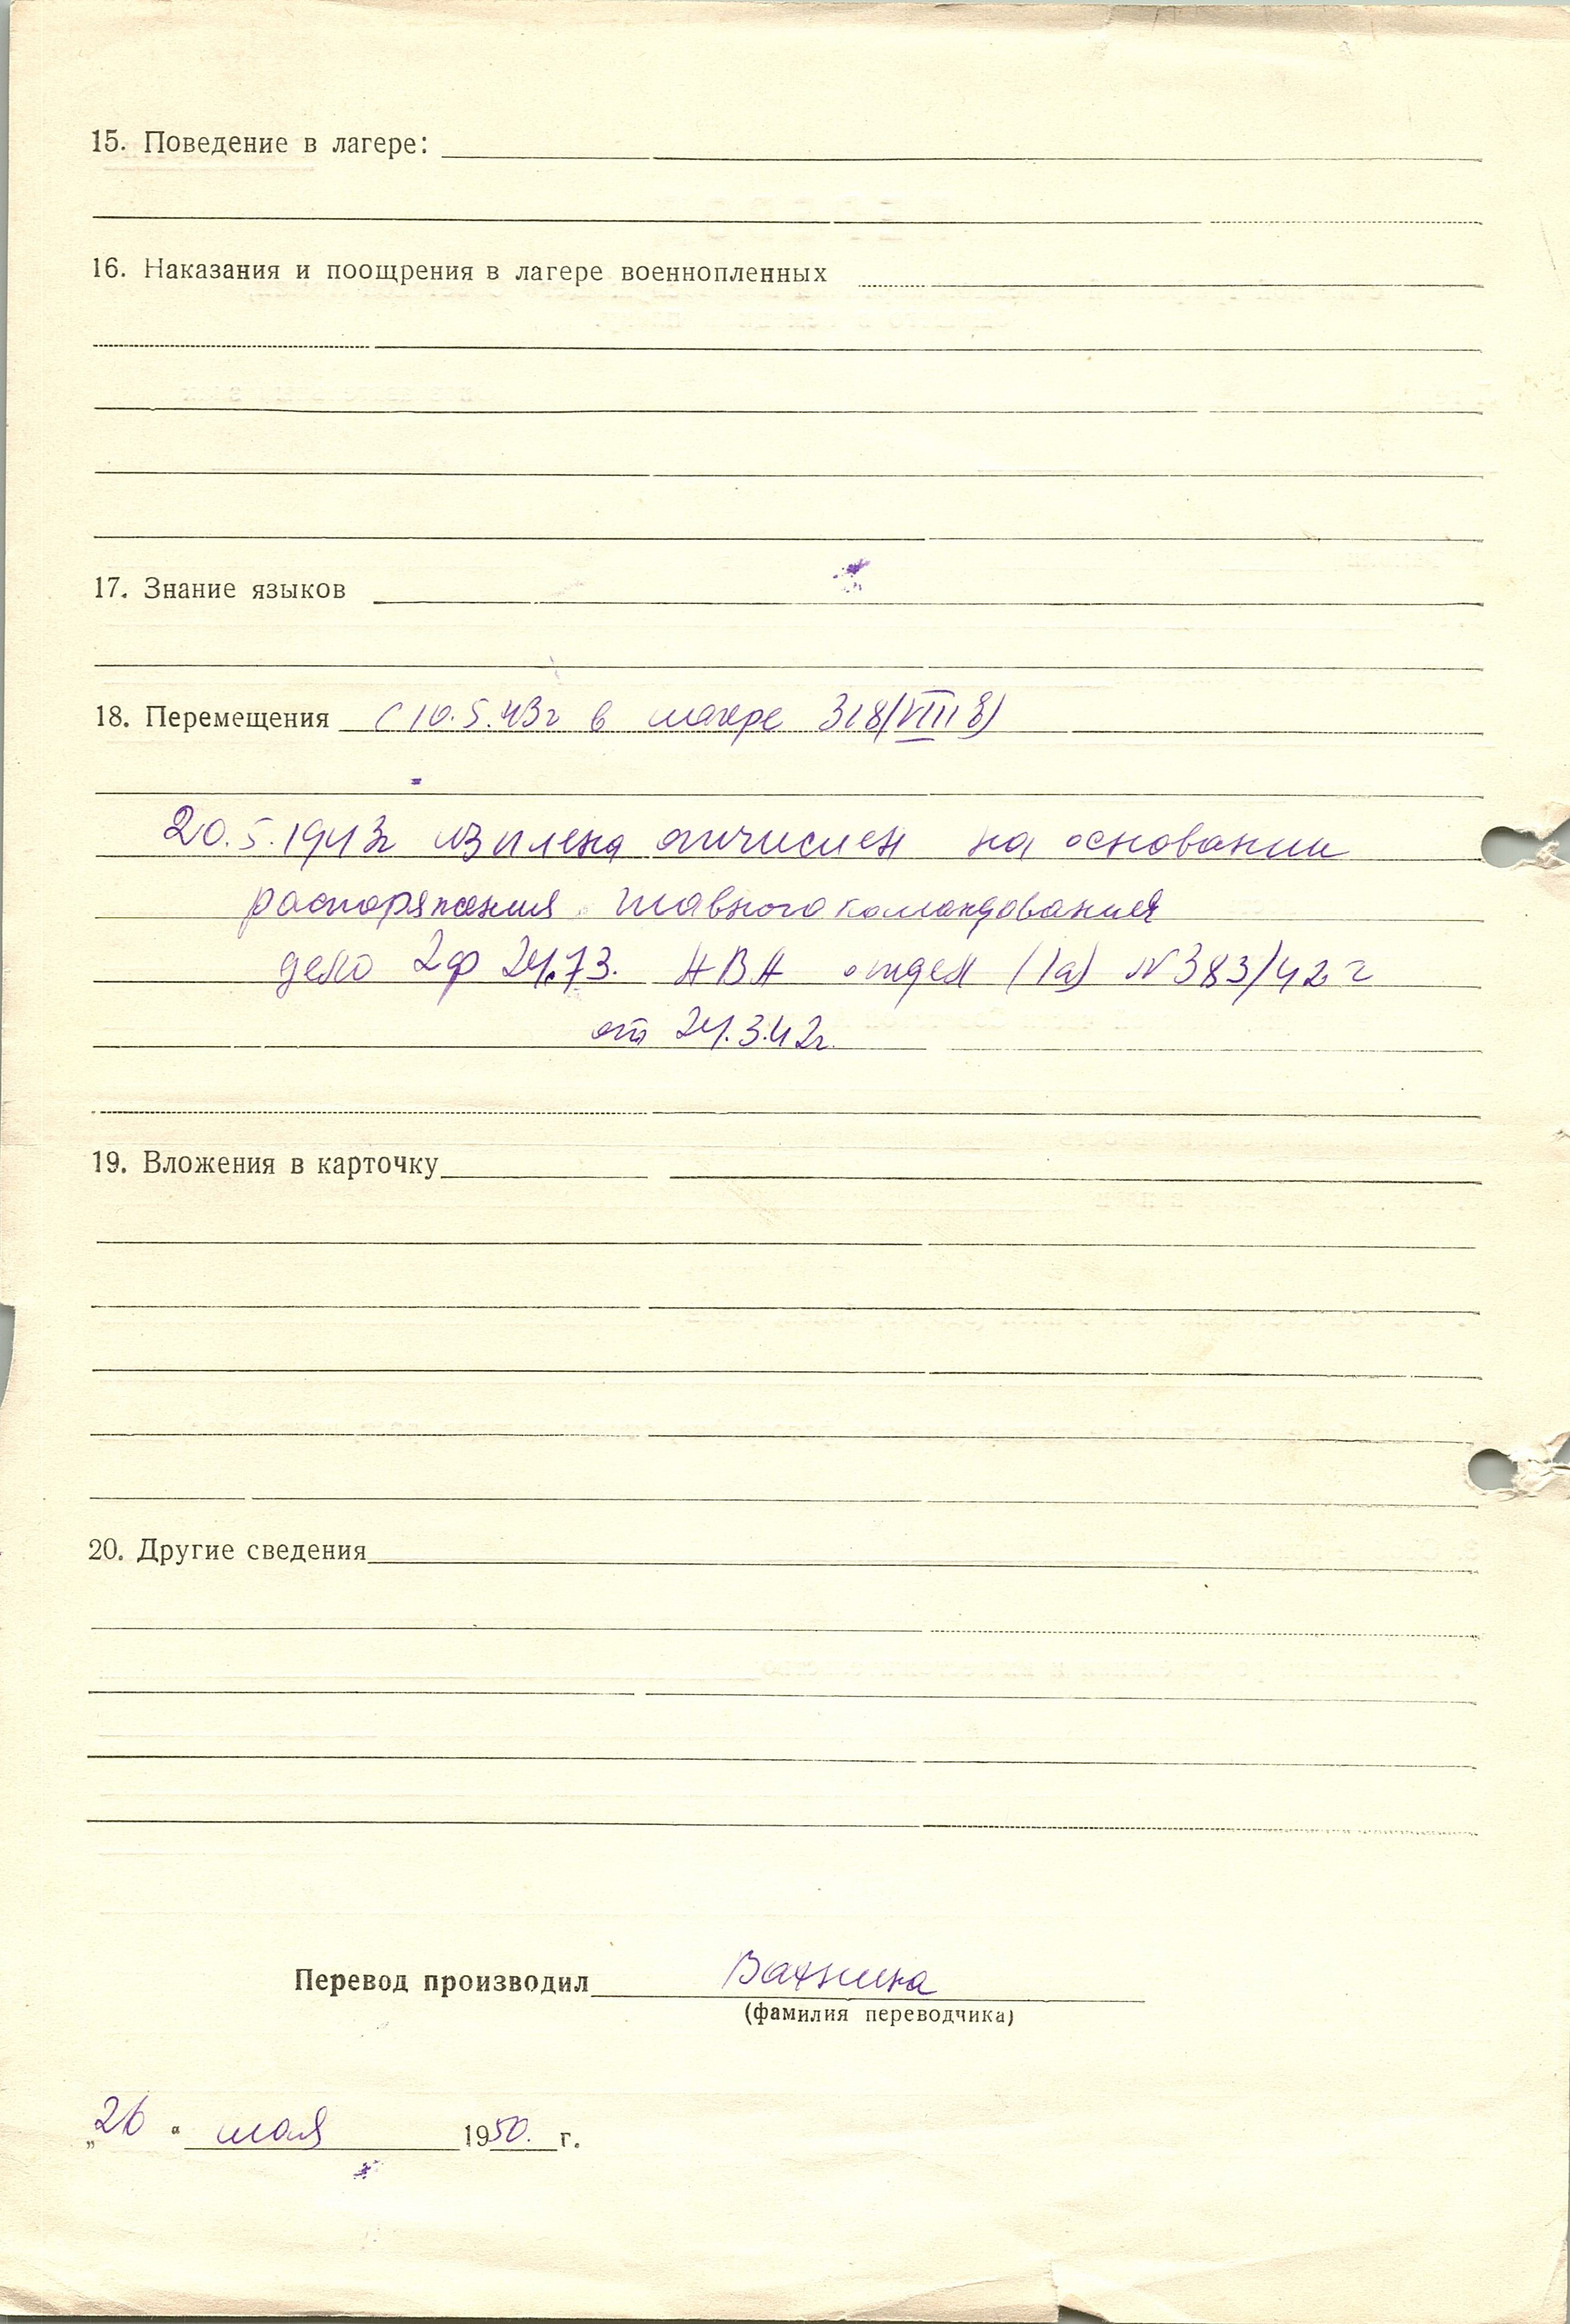 15. Поведение в лагере:
16. Наказания и поощрения в лагере военнопленных
17. Знание языков
18. Перемещения с 10.5.43г в лагере 318(VIII
20.5.1943г из плена отчислен на основании
распоряжения главного командования
дело 2ф 24.73. АВА отдел (Ia) N 383/42 г
от 24.3.42г.
19. Вложения в карточку
20. Другие сведения
Перевод производил Вахнина
(фамилия переводчика)
„26 “ мая 1950. г.